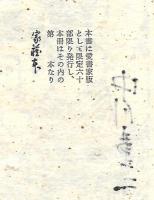 本書は愛書家版
として限定六十
部限り発行し、
本冊はその内の
第　　本なり
家蔵本